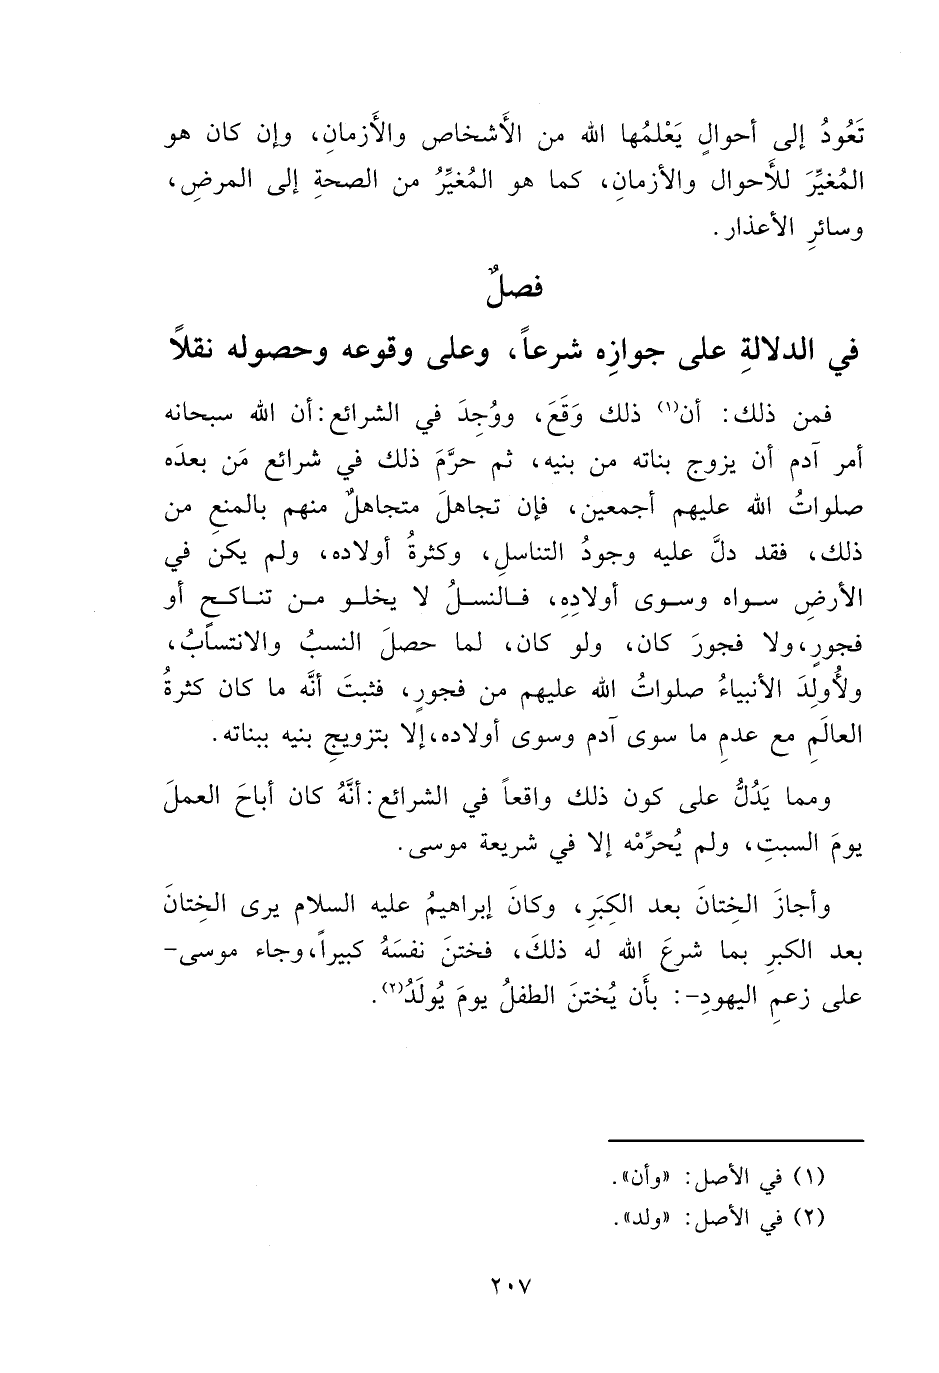 تَعُودُ إلى أحوالٍ يَعْلمُها الله من الأَشخاص والأَزمانِ، وإن كان هو
المُغيِّرَ للأَحوال والأزمانِ، كما هو المُغيِّرُ من الصحةِ إلى المرضِ،
وسائرِ الأعذار.
فصلٌ
في الدلالةِ على جوازِه شرعاً، وعلى وقوعه وحصوله نقلاً
فمن ذلك: أن(١) ذلك وَقَعَ، ووُجِدَ في الشرائع:أن الله سبحانه
أمر آدم أن يزوج بناته من بنيه، ثم حرَّمَ ذلك في شرائع مَن بعدَه
صلواتُ الله عليهم أجمعين، فإن تجاهلَ متجاهلٌ منهم بالمنعِ من
ذلك، فقد دلَّ عليه وجودُ التناسلِ، وكثرةُ أولاده، ولم يكن في
الأرضِ سواه وسوى أولادِهِ، فالنسلُ لا يخلو من تناكحٍ أو
فجورٍ،ولا فجورَ كان، ولو كان، لما حصلَ النسبُ والانتسابُ،
ولأُولِدَ الأنبياءُ صلواتُ الله عليهم من فجورٍ، فثبتَ أنَّه ما كان كثرةُ
العالَمِ مع عدمِ ما سوى آدم وسوى أولاده،إلا بتزويجِ بنيه ببناته.
ومما يَدُلُّ على كون ذلك واقعاً في الشرائع:أنَّهُ كان أباحَ العملَ
يومَ السبتِ، ولم يُحرِّمْه إلا في شريعة موسى.
وأجازَ الخِتانَ بعد الكِبَرِ، وكانَ إبراهيمُ عليه السلام يرى الخِتانَ
بعد الكبرِ بما شرعَ الله له ذلكَ، فختنَ نفسَهُ كبيراً،وجاء موسى-
على زعمِ اليهودِ-: بأَن يُختنَ الطفلُ يومَ يُولَدُ(٢).
(١) في الأصل: «وأن».
(٢) في الأصل: «ولد».
٢٠٧